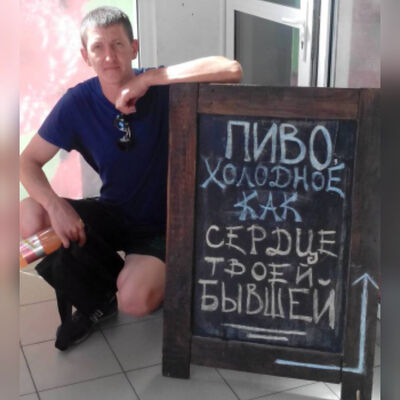 ПИВО,
ХОЛОДНОЕ
КАК
СЕРДЦЕ
ТВОЕЙ
БЫВШЕЙ